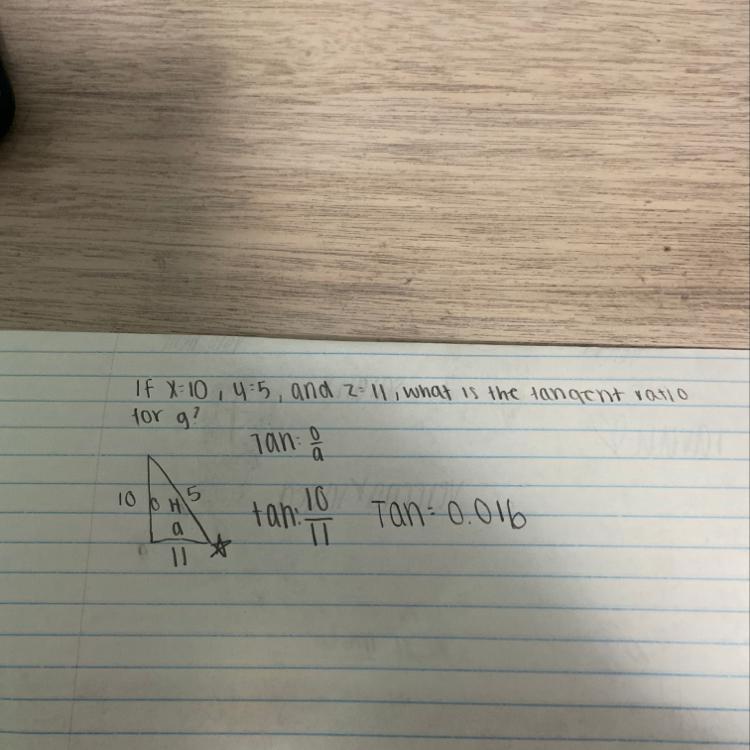 If x=10, y=5, and z=11, what is the tangent ratio
for g?
Tan: o/a
10 O H 5
a
11
tan: 10/11 Tan= 0.016